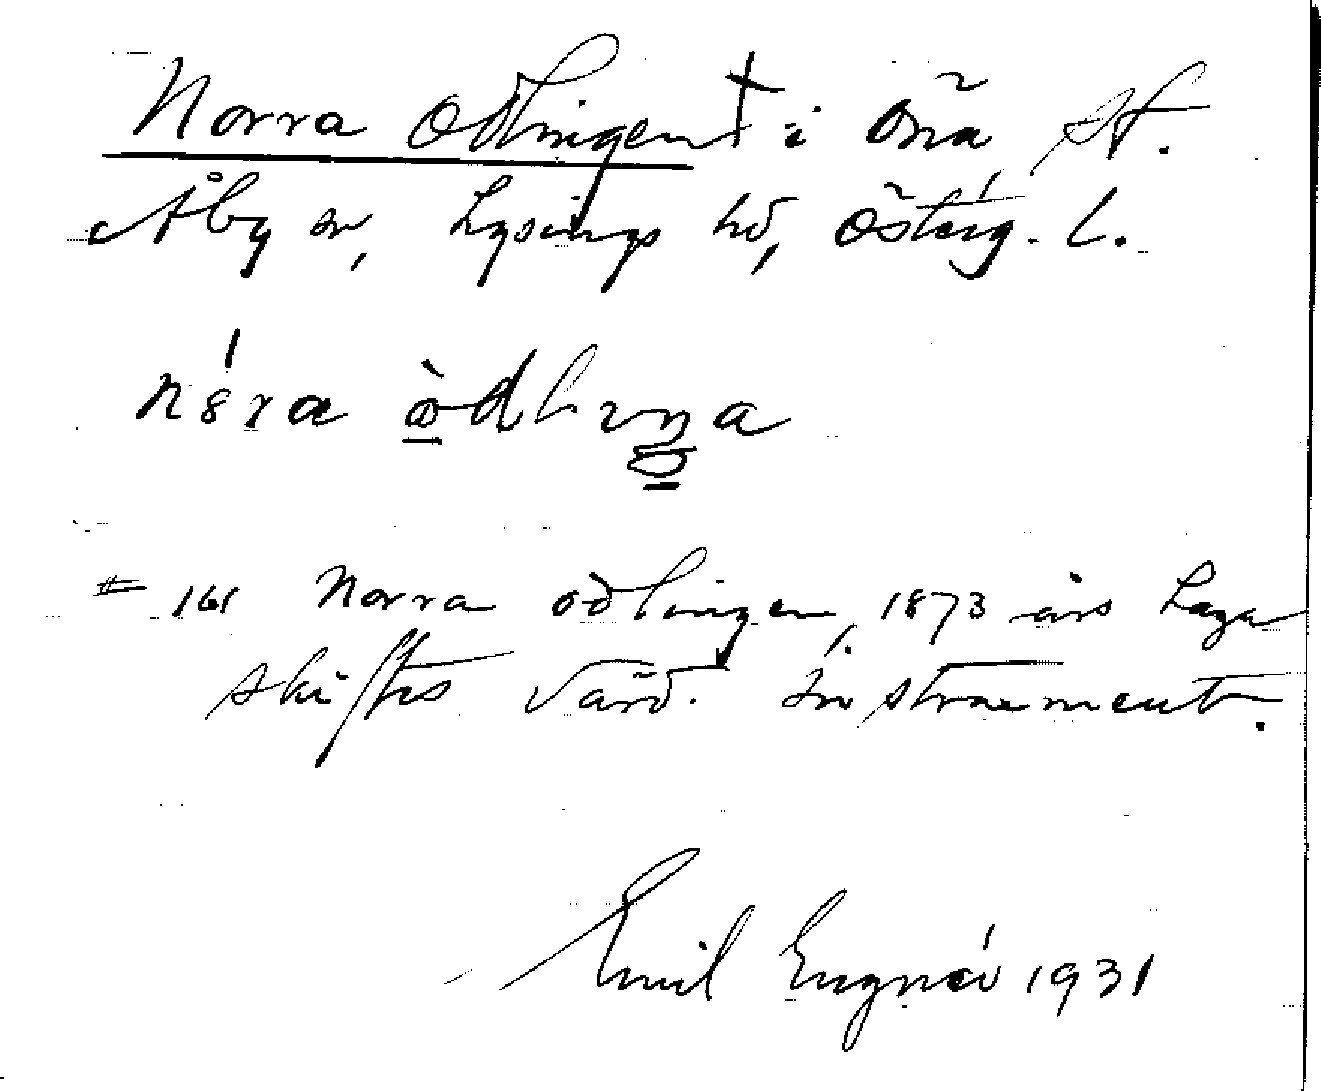 Norra Odlingen † i Öna, St.
Åby sn, Lysings hd, Österg. L.
= 161 Norra odlingen, 1873 års Laga
skiftes Värd. Instrument.
Emil Engnér 1931